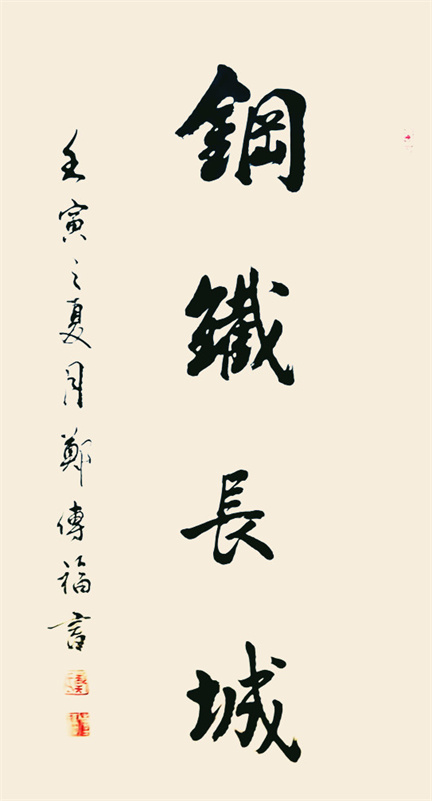 鋼鐵長城
壬寅之夏月鄭傳福書